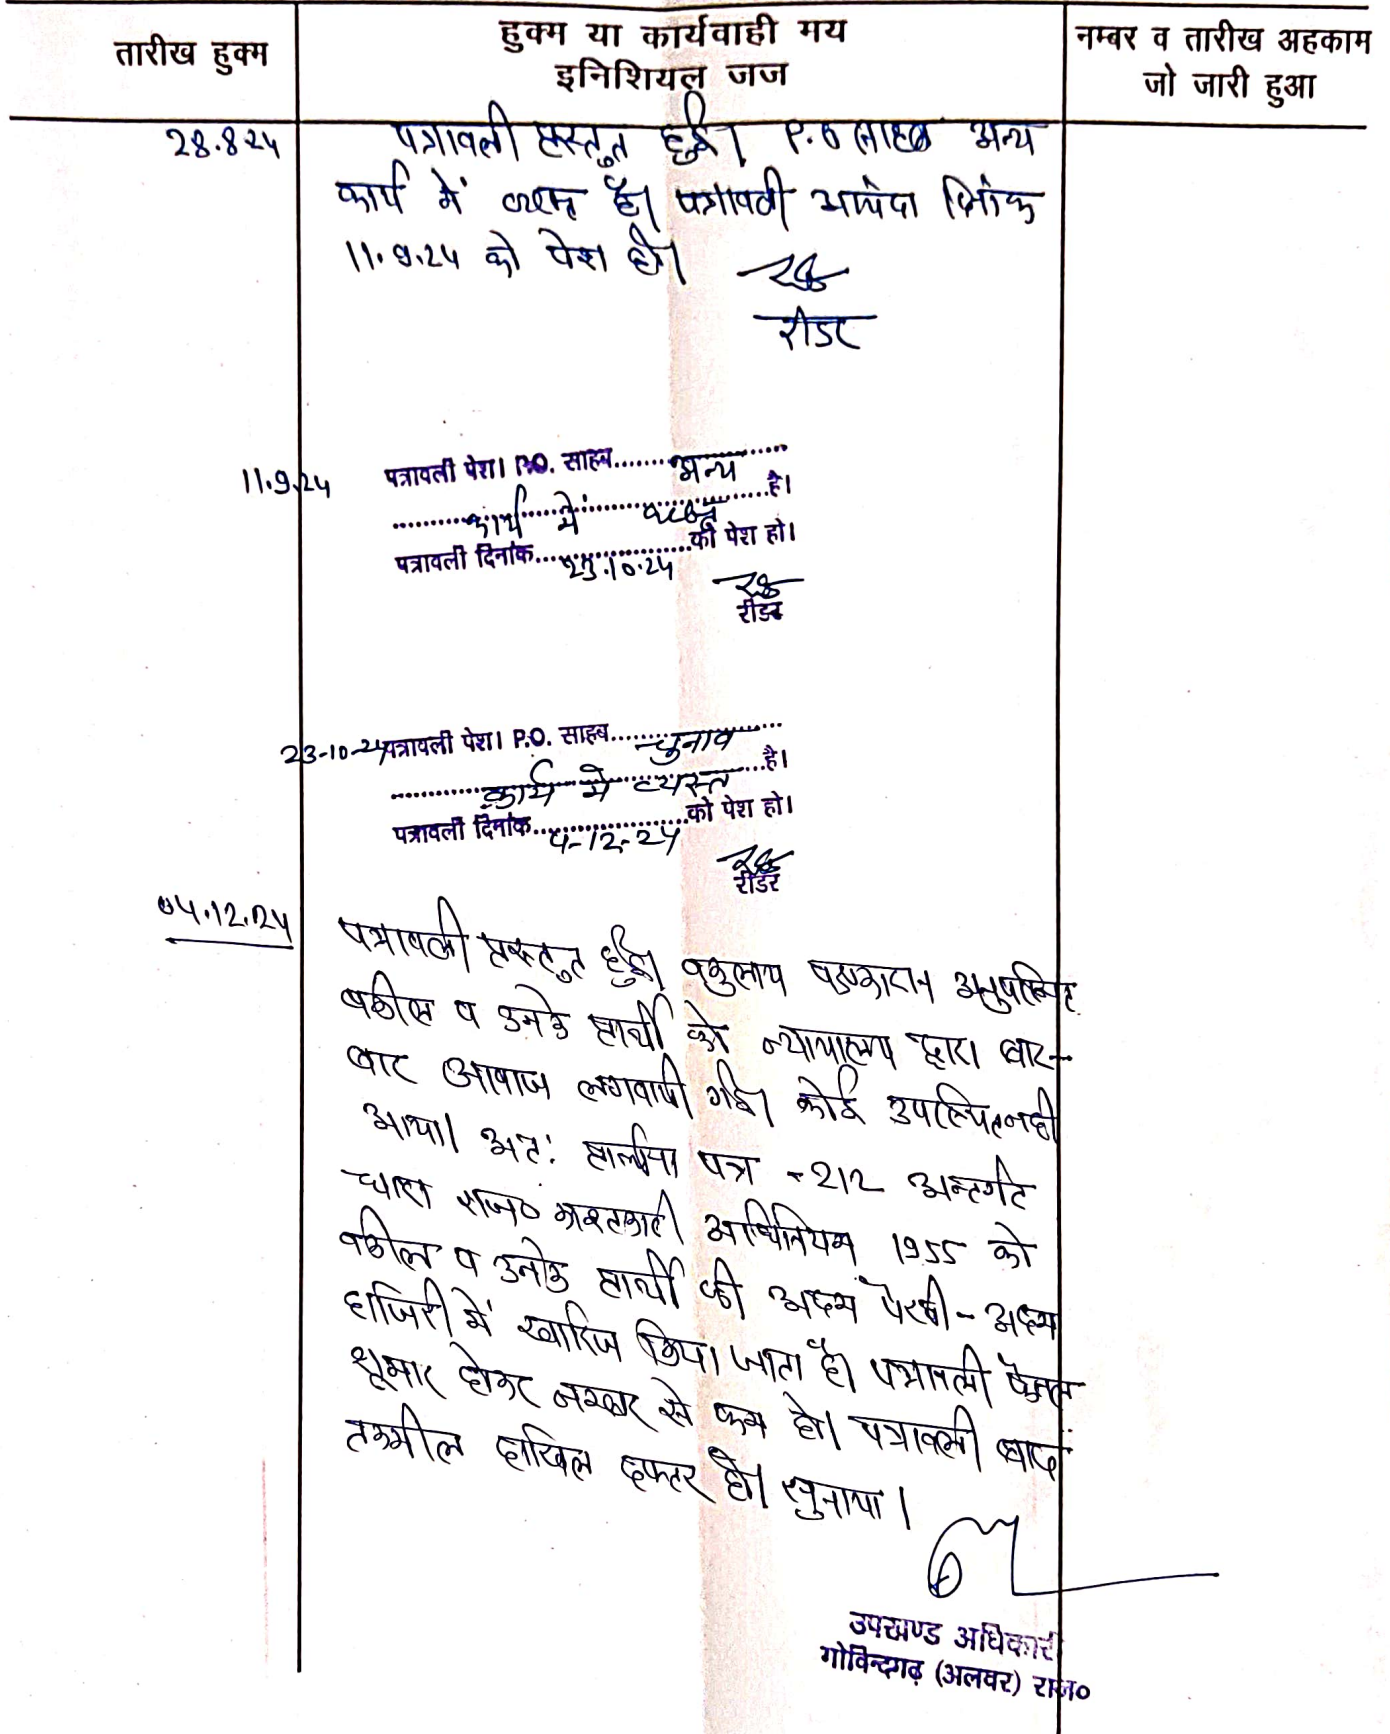 तारीख हुक्म
हुक्म या कार्यवाही मय
इनिशियल जज
नम्बर व तारीख अहकाम
जो जारी हुआ
28.8.24
पत्रावली प्रस्तुत हुई। P.O साहब अन्य
कार्य में व्यस्त है। पत्रावली दिनांक
11.9.24 को पेश हो।
रीडर
11.9.24
पत्रावली पेश। P.O. साहब.......अन्य.......
.......कार्य में व्यस्त.......है।
पत्रावली दिनांक.......23.10.24.......को पेश हो।
रीडर
23-10-24
पत्रावली पेश। P.O. साहब.......चुनाव.......
.......कार्य में व्यस्त.......है।
पत्रावली दिनांक.......4-12-24.......को पेश हो।
रीडर
04.12.24
पत्रावली प्रस्तुत हुई। वकुलाय अनुपस्थित
वकील व उनके प्रार्थी को न्यायालय द्वारा बार-
बार आवाज लगवायी गई। कोई उपस्थित नही
आया। अत: प्रार्थना पत्र -212 अन्तर्गत
धारा राज० काश्तकारी अधिनियम 1955 को
वकील व उनके प्रार्थी की अदम पैरवी - अदम
हाजिरी में खारिज किया जाता है। पत्रावली फैसल
शुमार होकर नम्बर से कम हो। पत्रावली बाद
तकमील दाखिल दफ्तर हो। सुनाया।
उपखण्ड अधिकारी
गोविन्दगढ़ (अलवर) राज०